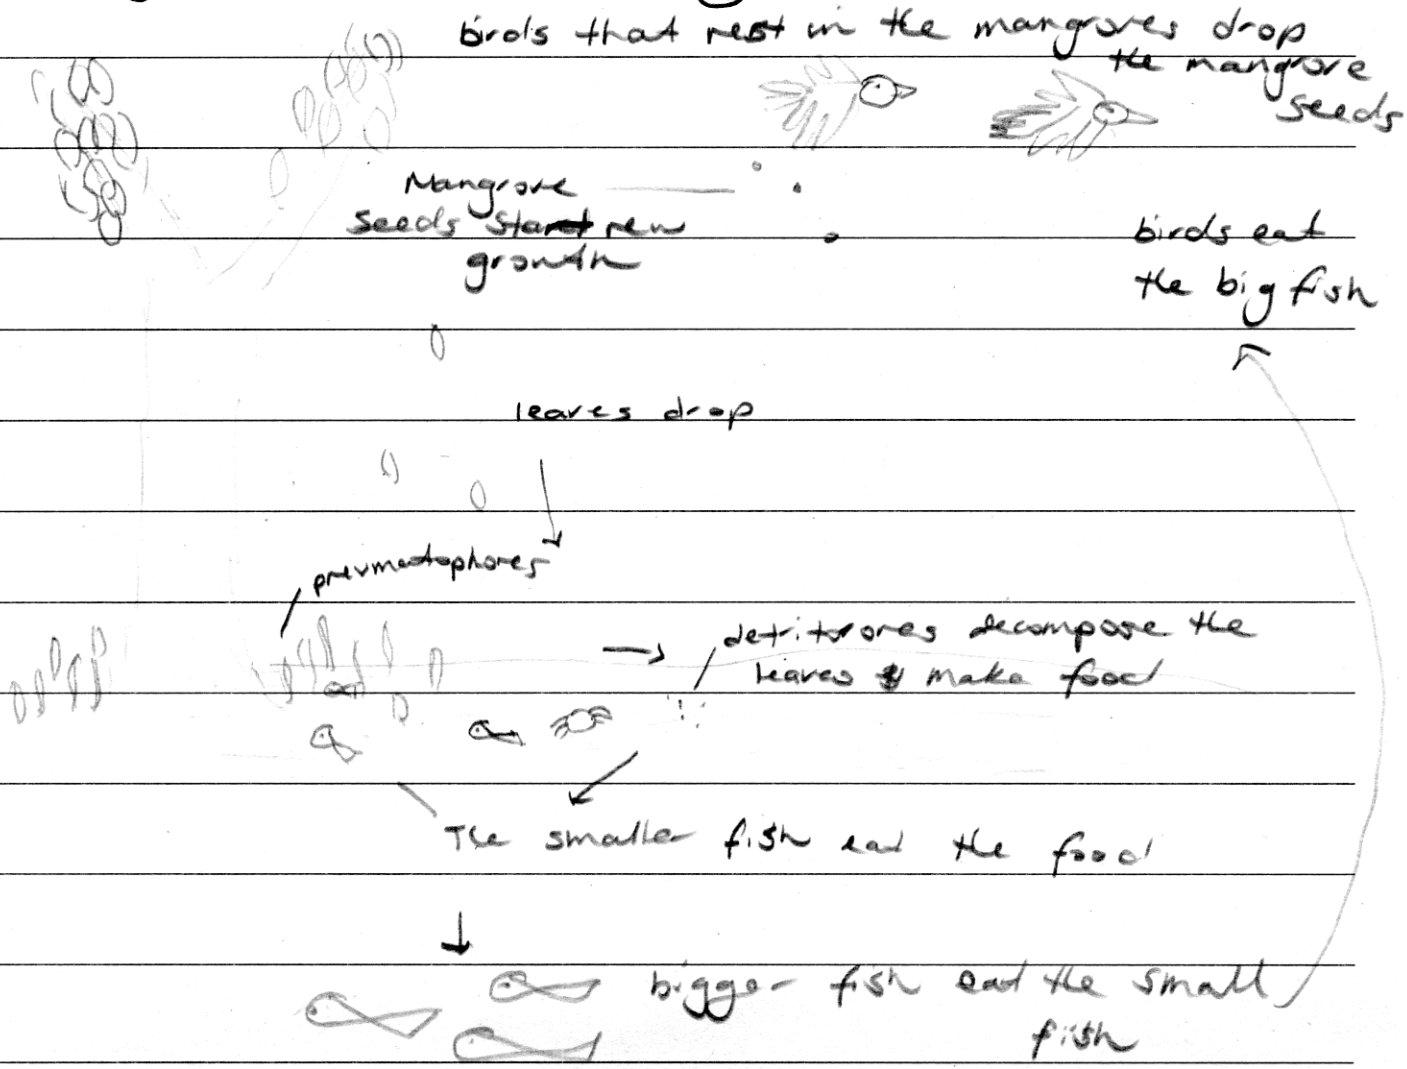 birds that rest in the mangroves drop
the mangrove
seeds
Mangrove
seeds start new
growth
birds eat
the big fish
leaves drop
pneumatophores
detritvores decompose the
leaves & make food
The smaller fish eat the food
bigger fish eat the small
fish